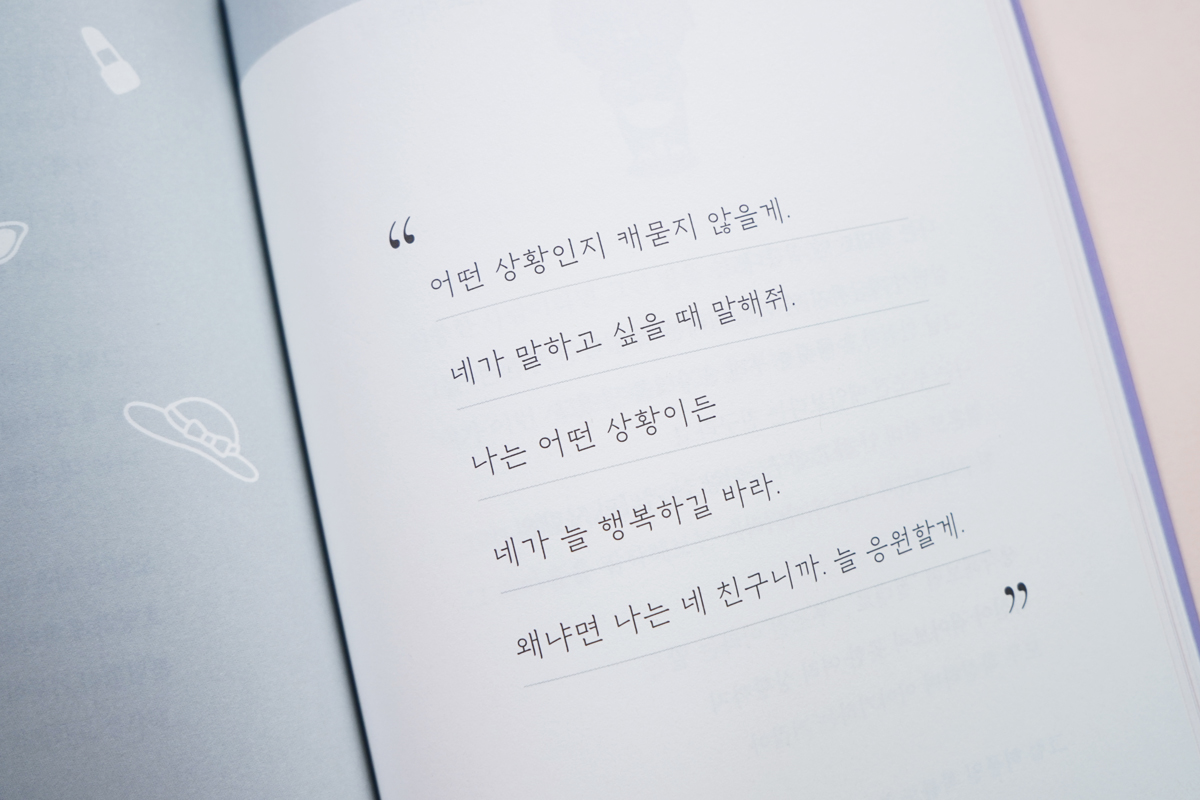 “
어떤 상황인지 캐묻지 않을게.
네가 말하고 싶을 때 말해줘.
나는 어떤 상황이든
네가 늘 행복하길 바라.
왜냐면 나는 네 친구니까. 늘 응원할게.
”